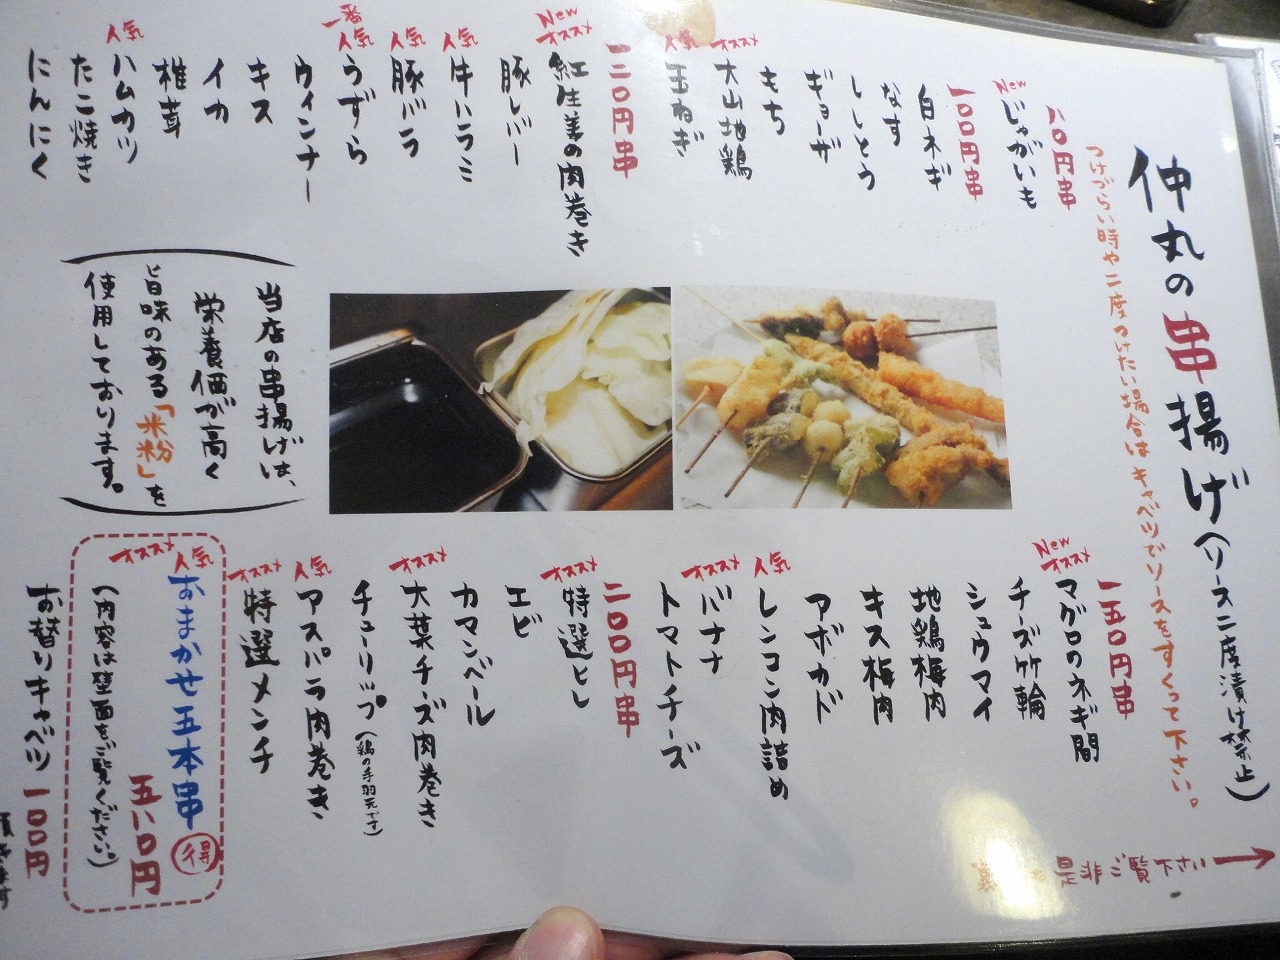 仲丸の串揚げ(ソース二度漬け禁止)
つけづらい時や二度つけたい場合はキャベツでソースをすくって下さい。
八〇円串
New
じゃがいも
一〇〇円串
白ネギ
なす
ししとう
ギョーザ
もち
オススメ
大山地鶏
人気
玉ねぎ
一二〇円串
New
オススメ
紅生姜の肉巻き
豚レバー
人気
牛ハラミ
人気
豚バラ
一番
人気
うずら
ウィンナー
キス
イカ
椎茸
人気
ハムカツ
たこ焼き
にんにく
当店の串揚げは、
栄養価が高く
旨味のある「米粉」を
使用しております。
一五〇円串
New
オススメ
マグロのネギ間
チーズ竹輪
シュウマイ
地鶏梅肉
キス梅肉
アボカド
人気
レンコン肉詰め
オススメ
バナナ
トマトチーズ
二〇〇円串
オススメ
特選ヒレ
エビ
カマンベール
オススメ
大葉チーズ肉巻き
チューリップ(鶏の手羽元です)
人気
アスパラ肉巻き
オススメ
特選メンチ
人気
オススメ
おまかせ五本串 得
五八〇円
(内容は壁面をご覧ください。)
お替りキャベツ 一〇〇円
是非ご覧下さい→